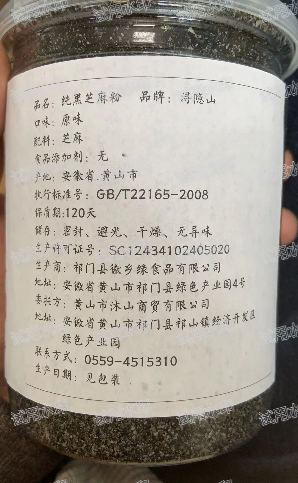 品名：纯黑芝麻粉 品牌：浔隐山
口味：原味
配料：芝麻
食品添加剂：无
产地：安徽省 黄山市
执行标准号：GB/T22165-2008
保质期:120天
储存：密封、避光、干燥、无异味
生产许可证号：SC12434102405020
生产商：祁门县徽乡缘食品有限公司
地址：安徽省黄山市祁门县绿色产业园4号
委托方：黄山市沐山商贸有限公司
地址：安徽省黄山市祁门县祁山镇经济开发区
绿色产业园
联系方式：0559-4515310
生产日期：见包装